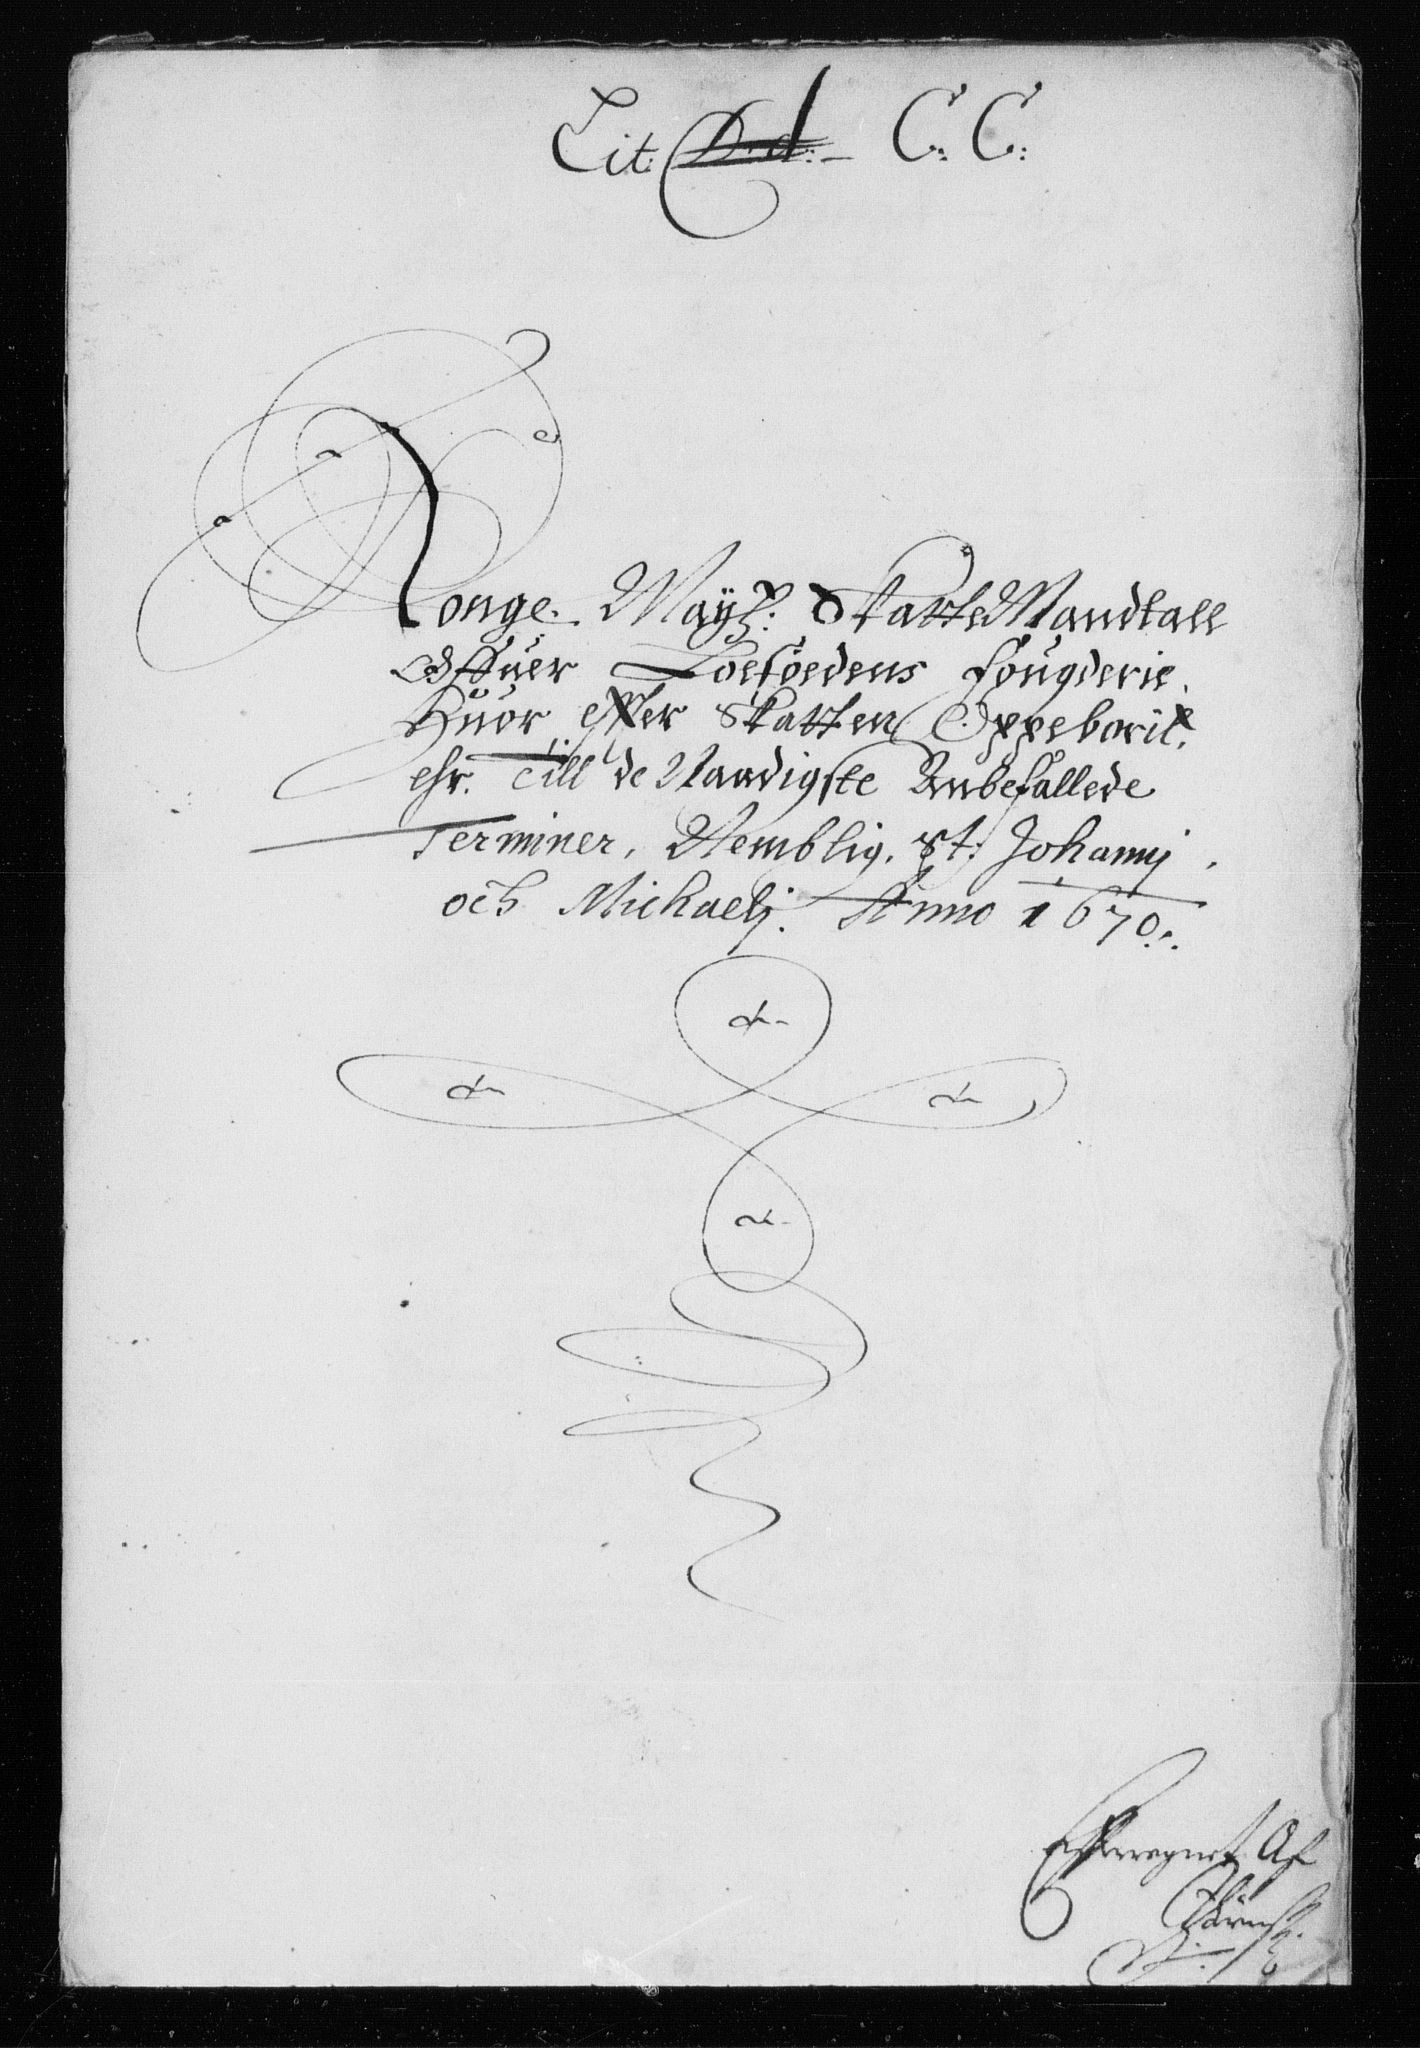 Lit: D.d: C: C:
Konge. Maÿtz: Skatte Mandtall
Offuer Loefoedens fougderie.
Huor efter skatten Oppeboril
ehr. till de Naadigste Anbefallede
Terminer, Nemblig. St: Johannj
och Michaelj. Anno 1670.
Efterregnet Af